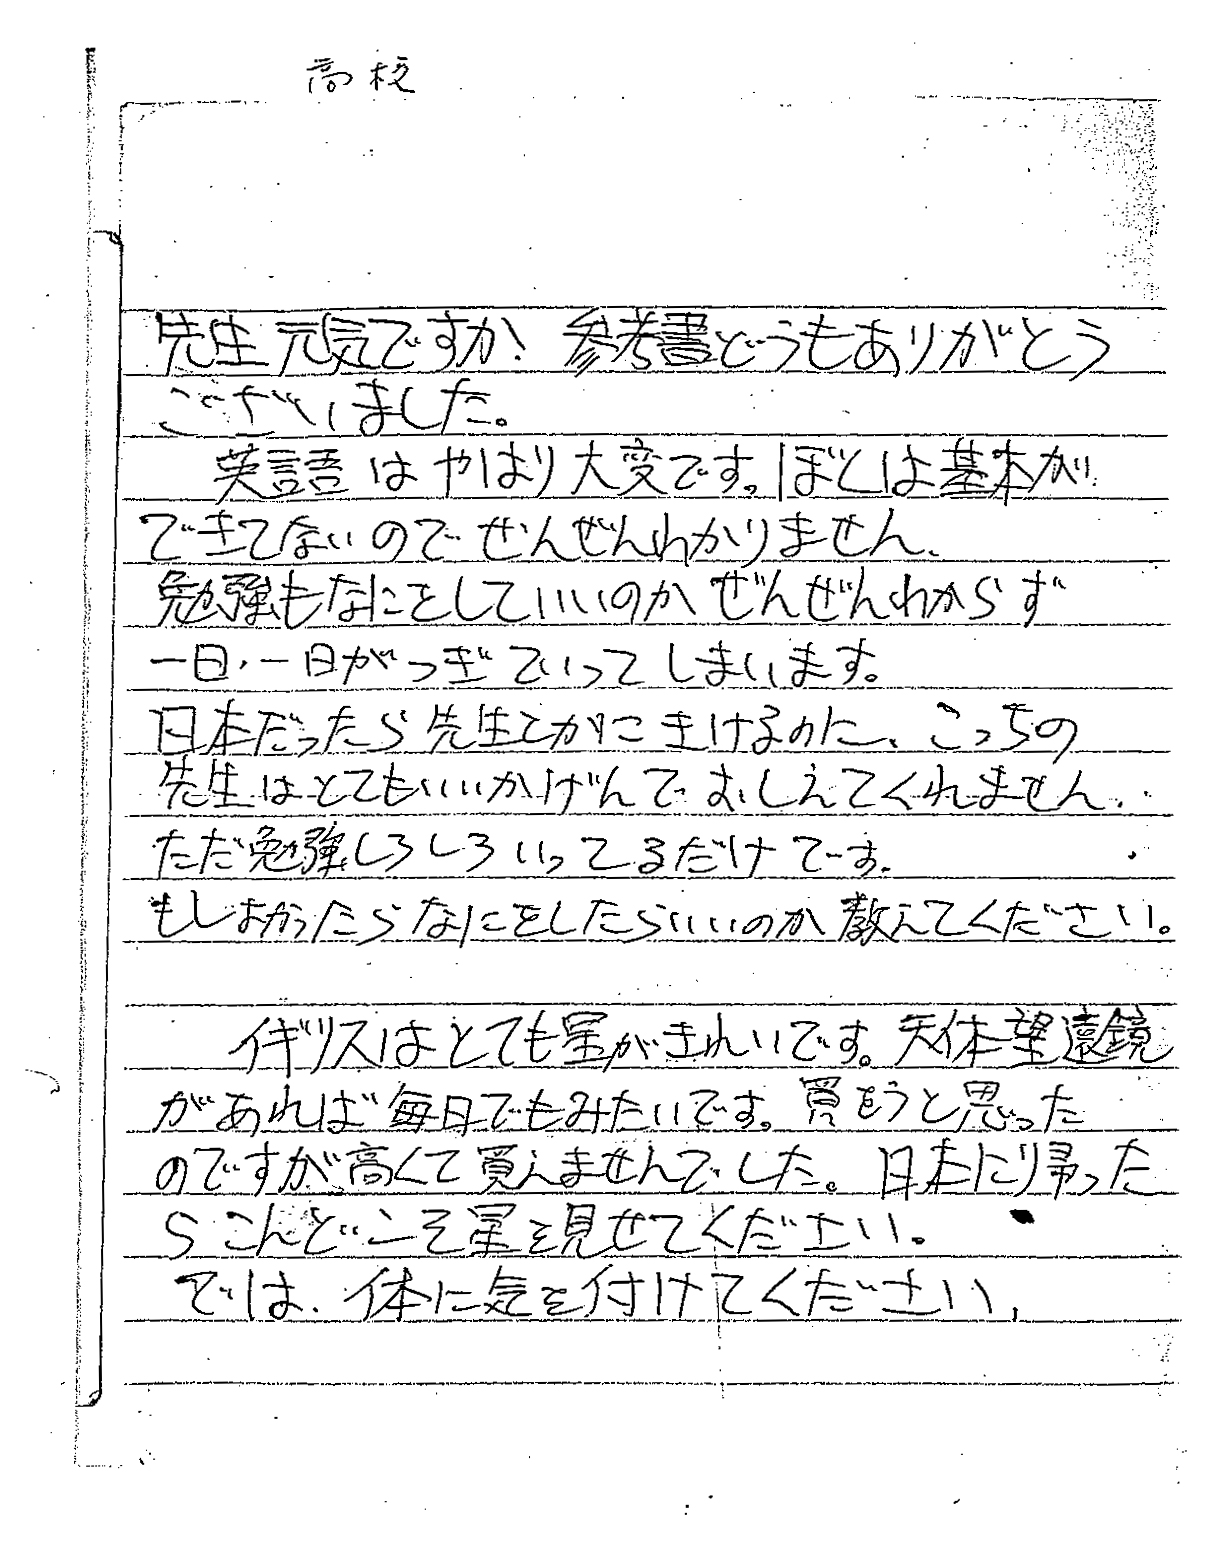 高校
先生元気ですか! 参考書どうもありがとう
ございました。
英語はやはり大変です。ぼくは基本が
できてないのでぜんぜんわかりません、
勉強もなにをしていいのかぜんぜんわからず
一日・一日がつぎでいってしまいます。
日本だったら先生とかにきけるのに、こっちの
先生はとてもいいかげんでおしえてくれません、
ただ勉強しろしろいってるだけです、
もしよかったらなにをしたらいいのか教えてください。
イギリスはとても星がきれいです。天体望遠鏡
があれば毎日でもみたいです。買をうと思った
のですが、高くて買えませんでした。日本に帰った
らこんどこそ星を見せてください。
では、体に気を付けてください、